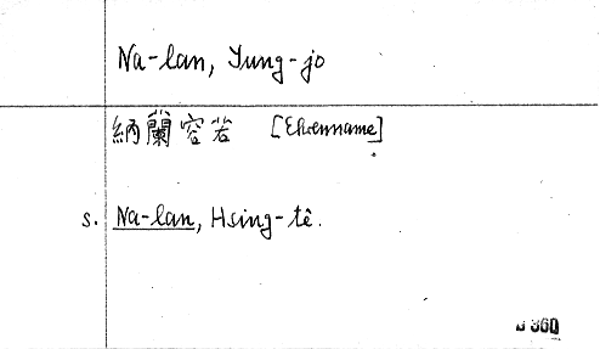 Na-lan, Yung-jo
納蘭容若 [Ehrenname]
s. Na-lan, Hsing-tê.
360